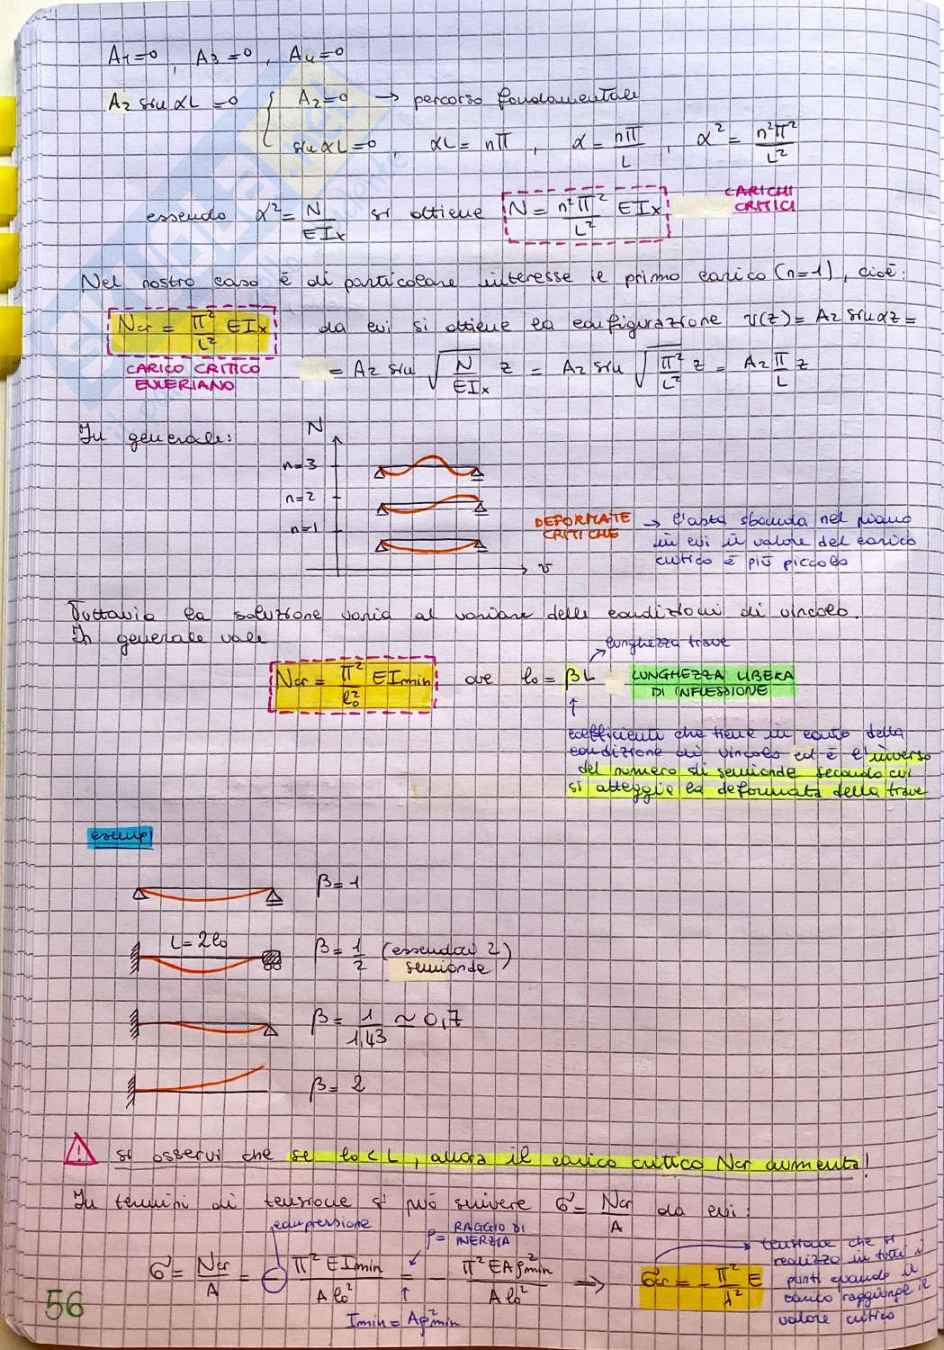 A₁=0 , A₃=0 , A₄=0
A₂ sin αL =0 { A₂=0 → percorso fondamentale
sin αL=0 , αL= nπ , α= nπ/L , α²= n²π²/L²
essendo α²= N/EIx si ottiene N= n²π²/L² EIx CARICHI CRITICI
Nel nostro caso è di particolare interesse il primo carico (n=1), cioè:
Ncr = π²/L² EIx da cui si ottiene la configurazione v(z)= A₂ sin αz =
CARICO CRITICO EULERIANO
= A₂ sin √(N/EIx) z = A₂ sin √(π²/L²) z = A₂ π/L z
In generale:
N
n=3
n=2
n=1
v
DEFORMATE CRITICHE → l'asta sbanda nel piano
in cui il valore del carico
critico è più piccolo
Tuttavia la soluzione varia al variare delle condizioni di vincolo.
In generale vale
lunghezza trave
Ncr = π²/l₀² EImin ove l₀ = βL LUNGHEZZA LIBERA
DI INFLESSIONE
coefficiente che tiene in conto della
condizione di vincolo ed è l'inverso
del numero di semionde secondo cui
si atteggia la deformata della trave
esempi
β= 1
L= 2l₀
β= 1/2 (essendoci 2
semionde)
β= 1/1,43 ≃ 0,7
β= 2
! si osservi che se l₀<L, allora il carico critico Ncr aumenta!
In termini di tensione si può scrivere σ= Ncr/A da cui:
compressione
ρ= RAGGIO DI
INERZIA
σ= Ncr/A = - π² EImin/A l₀² = π² EAρ²min/A l₀² ⇒ σcr = - π²/λ² E
Imin = Aρ²min
tensione che si
realizza in tutti i
punti quando il
carico raggiunge il
valore critico
56